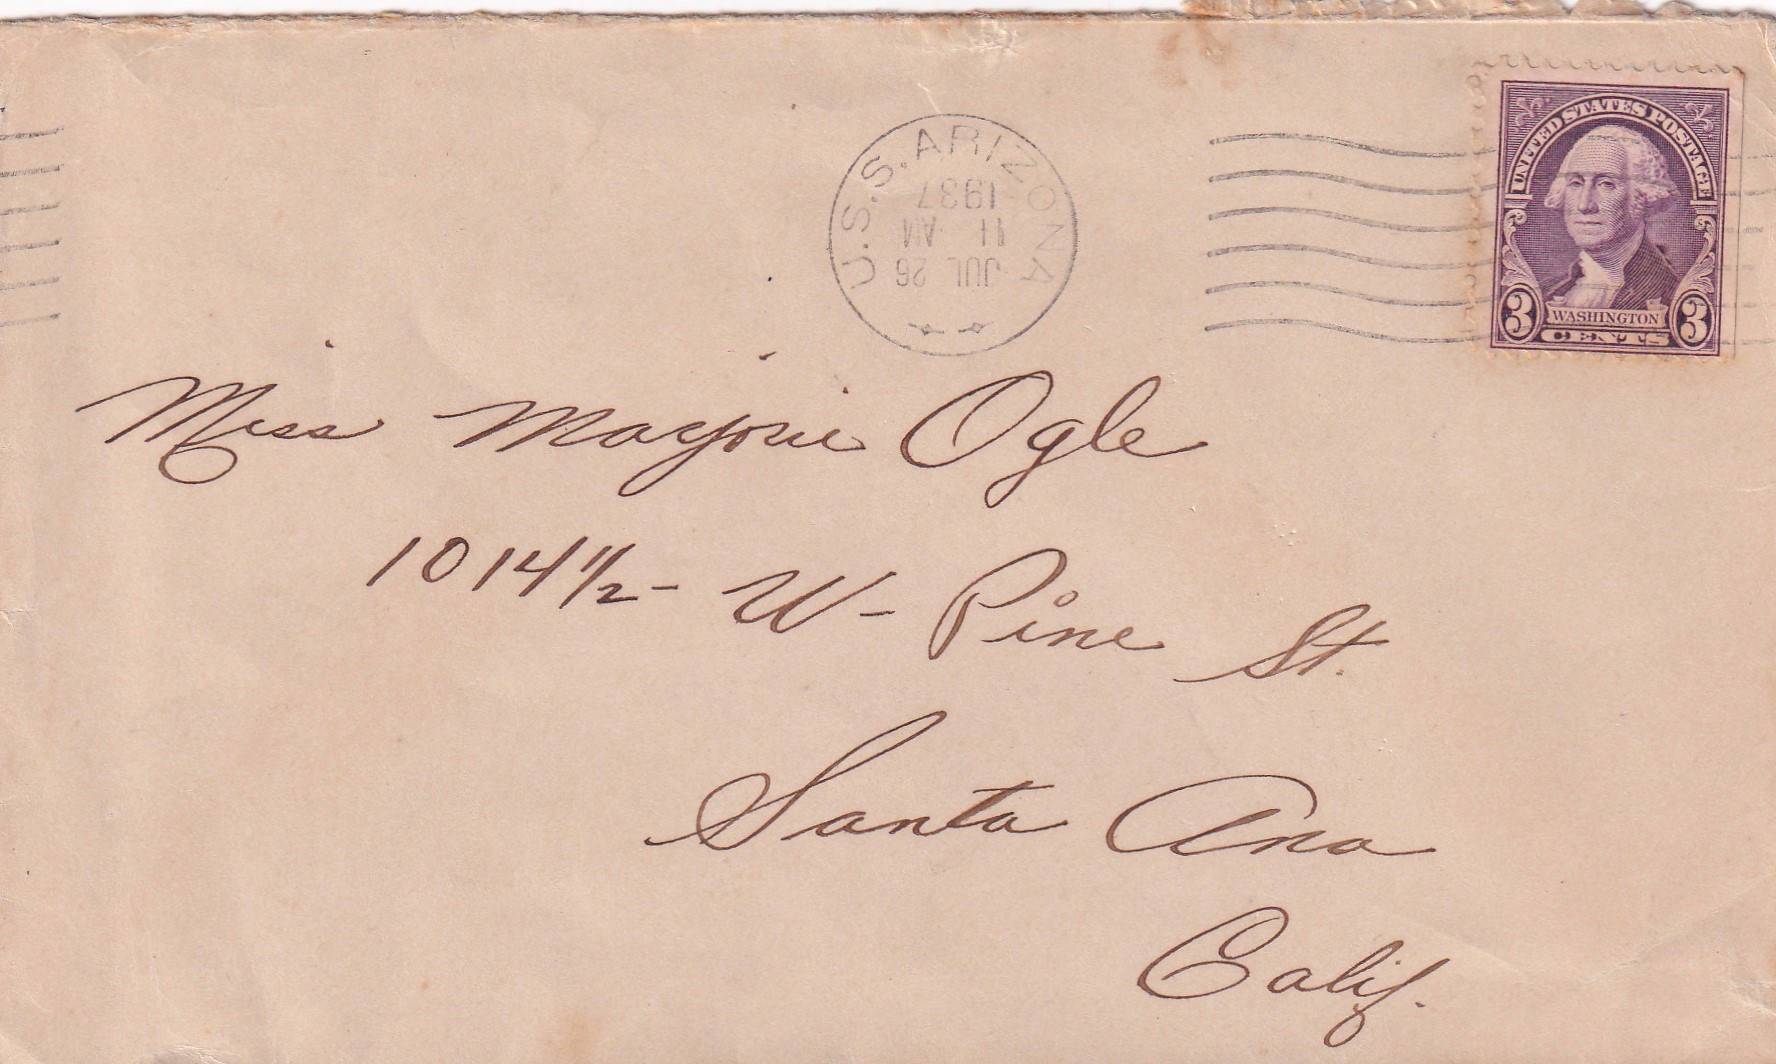 U.S.S. ARIZONA
JUL 26
11 AM
1937
UNITED STATES POSTAGE
3 WASHINGTON 3
CENTS
Miss Marjorie Ogle
1014 1/2 - W - Pine St.
Santa Ana
Calif.